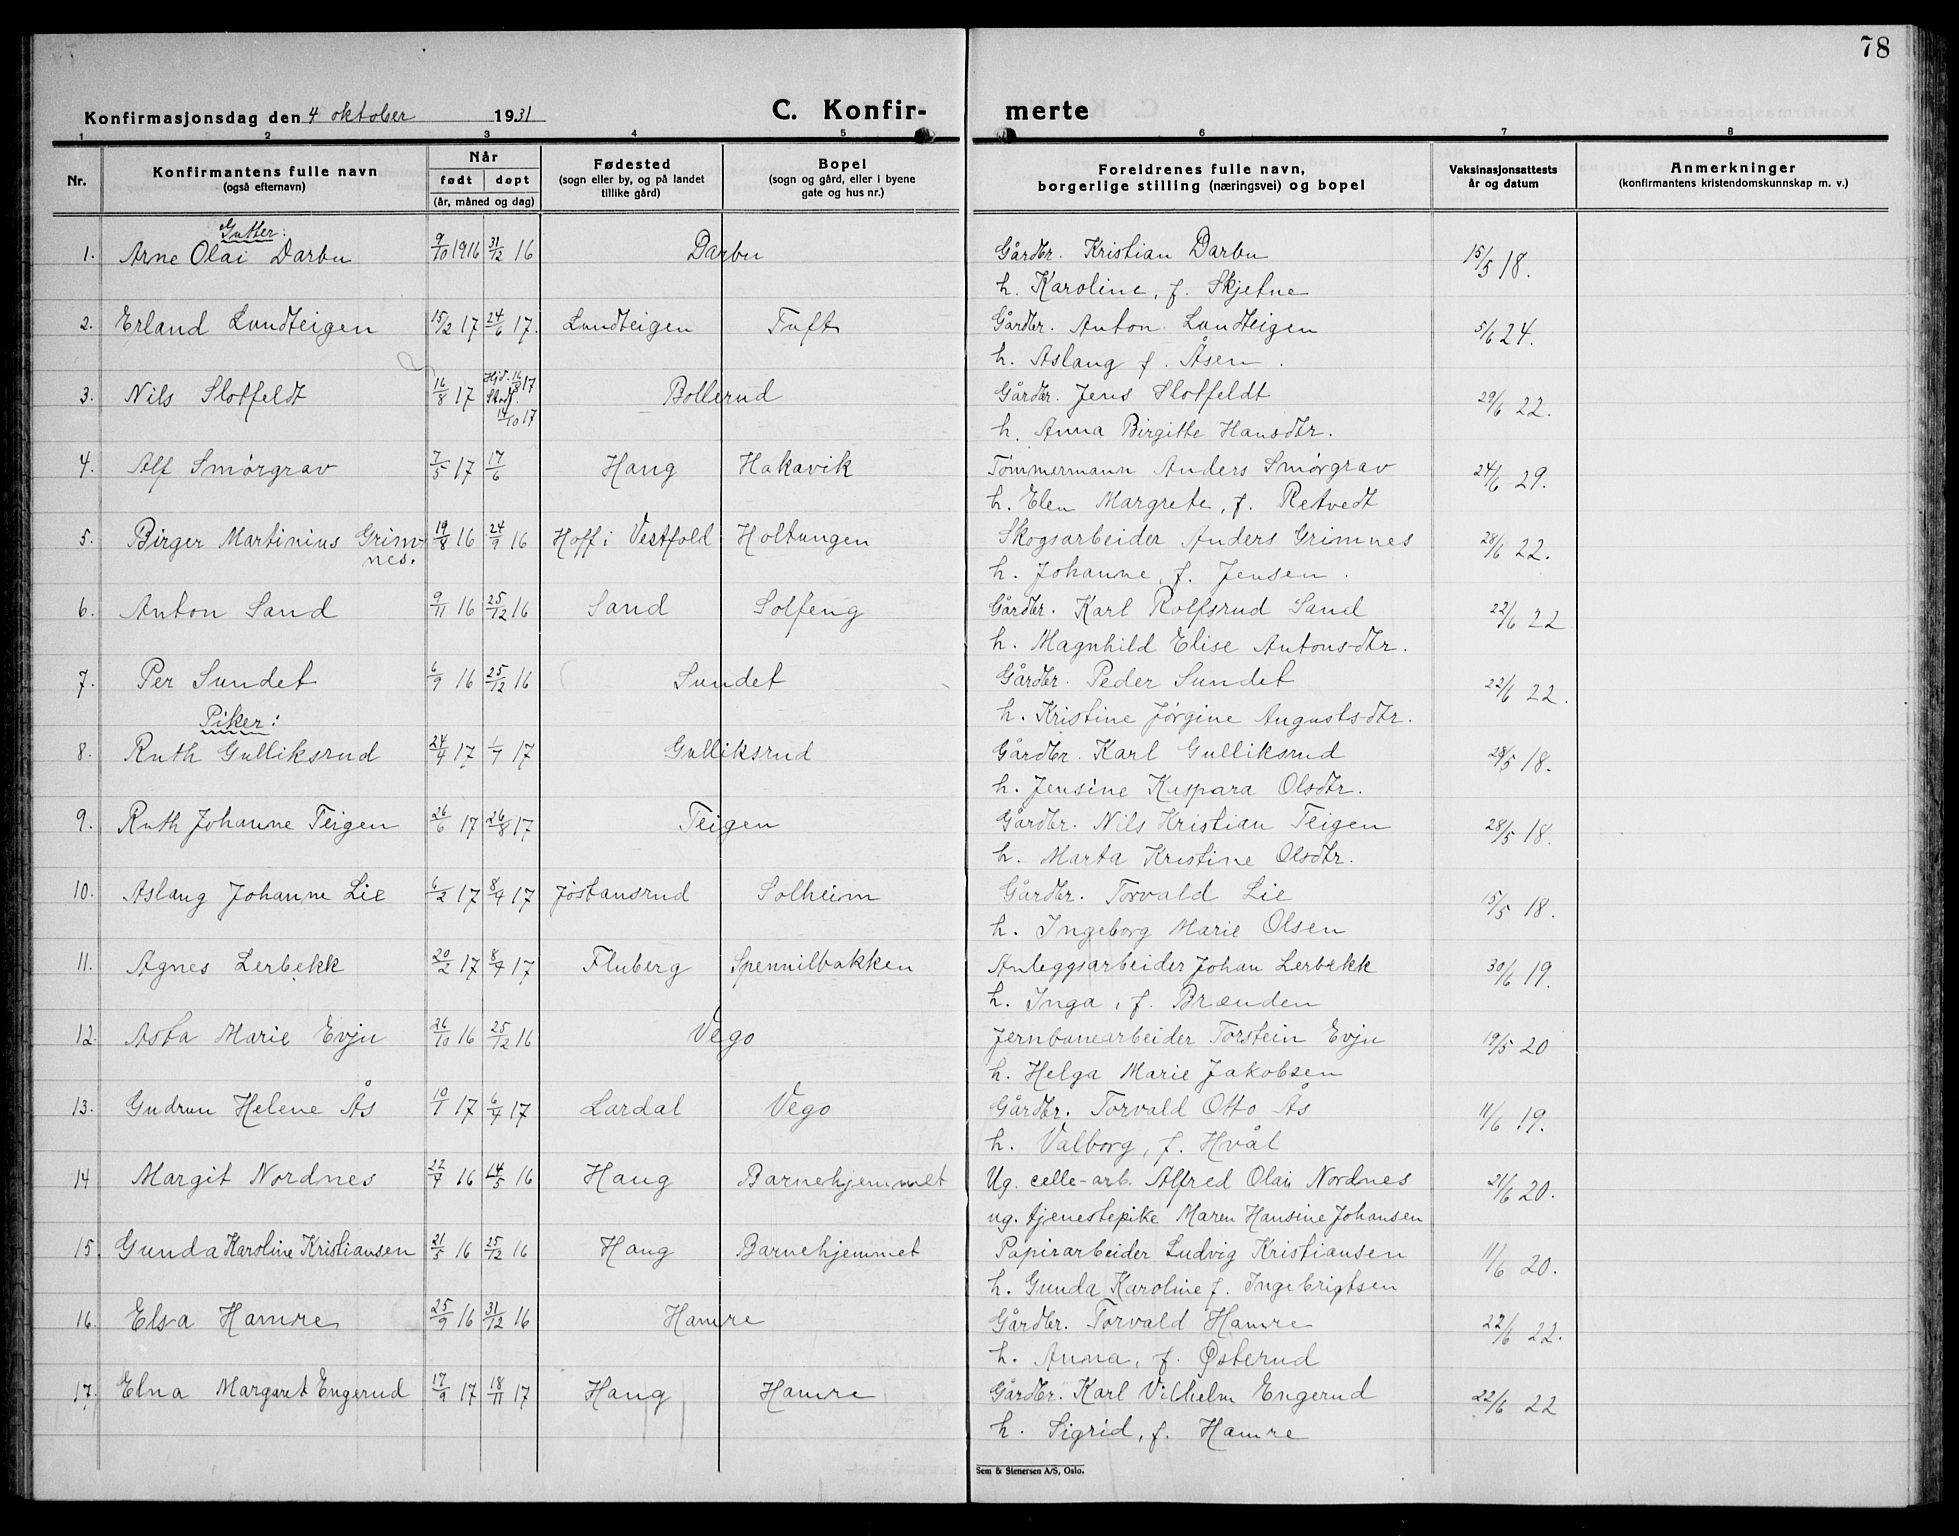 78
Konfirmasjonsdag den 4 oktober 1931 C. Konfir- merte
1 2 3 4 5 6 7 8
Nr. Konfirmantens fulle navn (også efternavn) Når født døpt (år, måned og dag) Fødested (sogn eller by, og på landet tillike gård) Bopel (sogn og gård, eller i byene gate og hus nr.) Foreldrenes fulle navn, borgerlige stilling (næringsvei) og bopel Vaksinasjonsattests år og datum Anmerkninger (konfirmantens kristendomskunnskap m. v.)
Gutter:
1. Arne Olai Darbu 9/10 1916 31/12 16 Darbu Gårdbr. Kristian Darbu 15/5 18.
h. Karoline, f. Skjetne
2. Erland Lundteigen 15/2 17 24/6 17. Lundteigen Tuft Gårdbr. Anton Lundteigen 5/6 24.
h. Aslaug f. Åsen.
3. Nils Slotfeldt 16/8 17 Hjd. 16/8 17 Stadf. 14/10 17 Bollerud Gårdbr. Jens Slotfeldt 29/6 22.
h. Anna Birgitte Hansdtr.
4. Alf Smørgrav 7/5 17 17/6 Haug Hakavik Tømmermann Anders Smørgrav 24/6 29.
h. Elen Margrete, f. Retvedt
5. Birger Martinius Grimnes. 19/8 16 24/9 16 Hoff i Vestfold Holtungen Skogsarbeider Anders Grimnes 28/6 22.
h. Johanne, f. Jensen.
6. Anton Sand 9/11 16 25/12 16 Sand Solfeng Gårdbr. Karl Rolfsrud Sand 22/6 22
h. Magnhild Elise Antonsdtr.
7. Per Sundet 6/9 16 25/12 16 Sundet Gårdbr. Peder Sundet 22/6 22.
h. Kristine Jørgine Augustsdtr.
Piker:
8. Ruth Gulliksrud 24/4 17 1/7 17 Gulliksrud Gårdbr. Karl Gulliksrud 28/5 18.
h. Jensine Kaspara Olsdtr.
9. Ruth Johanne Teigen 26/6 17 26/8 17 Teigen Gårdbr. Nils Kristian Teigen 28/5 18.
h. Marta Kristine Olsdtr.
10. Aslaug Johanne Lie 6/2 17 8/4 17 Jøstansrud Solheim Gårdbr. Torvald Lie 15/5 18.
h. Ingeborg Marie Olsen
11. Agnes Lerbekk 20/2 17 8/4 17 Fluberg Spennilbakken Anleggsarbeider Johan Lerbekk 30/6 19.
h. Inga, f. Brænden
12. Asta Marie Evju 26/10 16 25/12 16 Vego Jernbanearbeider Torstein Evju 19/5 20
h. Helga Marie Jakobsen
13. Gudrun Helene Ås 10/1 17 6/4 17 Lardal Vego Gårdbr. Torvald Otto Ås 11/6 19.
h. Valborg, f. Hvål
14 Margit Nordnes 22/7 16 14/5 16 Haug Barnehjemmet Ug. celle-arb. Alfred Olai Nordnes 21/6 20.
ug. tjenestepike Maren Hansine Johansen
15. Gunda Karoline Kristiansen 21/5 16 25/12 16 Haug Barnehjemmet Papirarbeider Ludvig Kristiansen 11/6 20.
h. Gunda Karoline f. Ingebrigtsen
16. Elsa Hamre 25/9 16 31/12 16 Hamre Gårdbr. Torvald Hamre 22/6 22.
h. Anna, f. Østerud
17. Elna Margaret Engerud 17/9 17 18/11 17 Haug Hamre Gårdbr. Karl Vilhelm Engerud 22/6 22
h. Sigrid, f. Hamre
Sem & Stenersen A/S, Oslo.